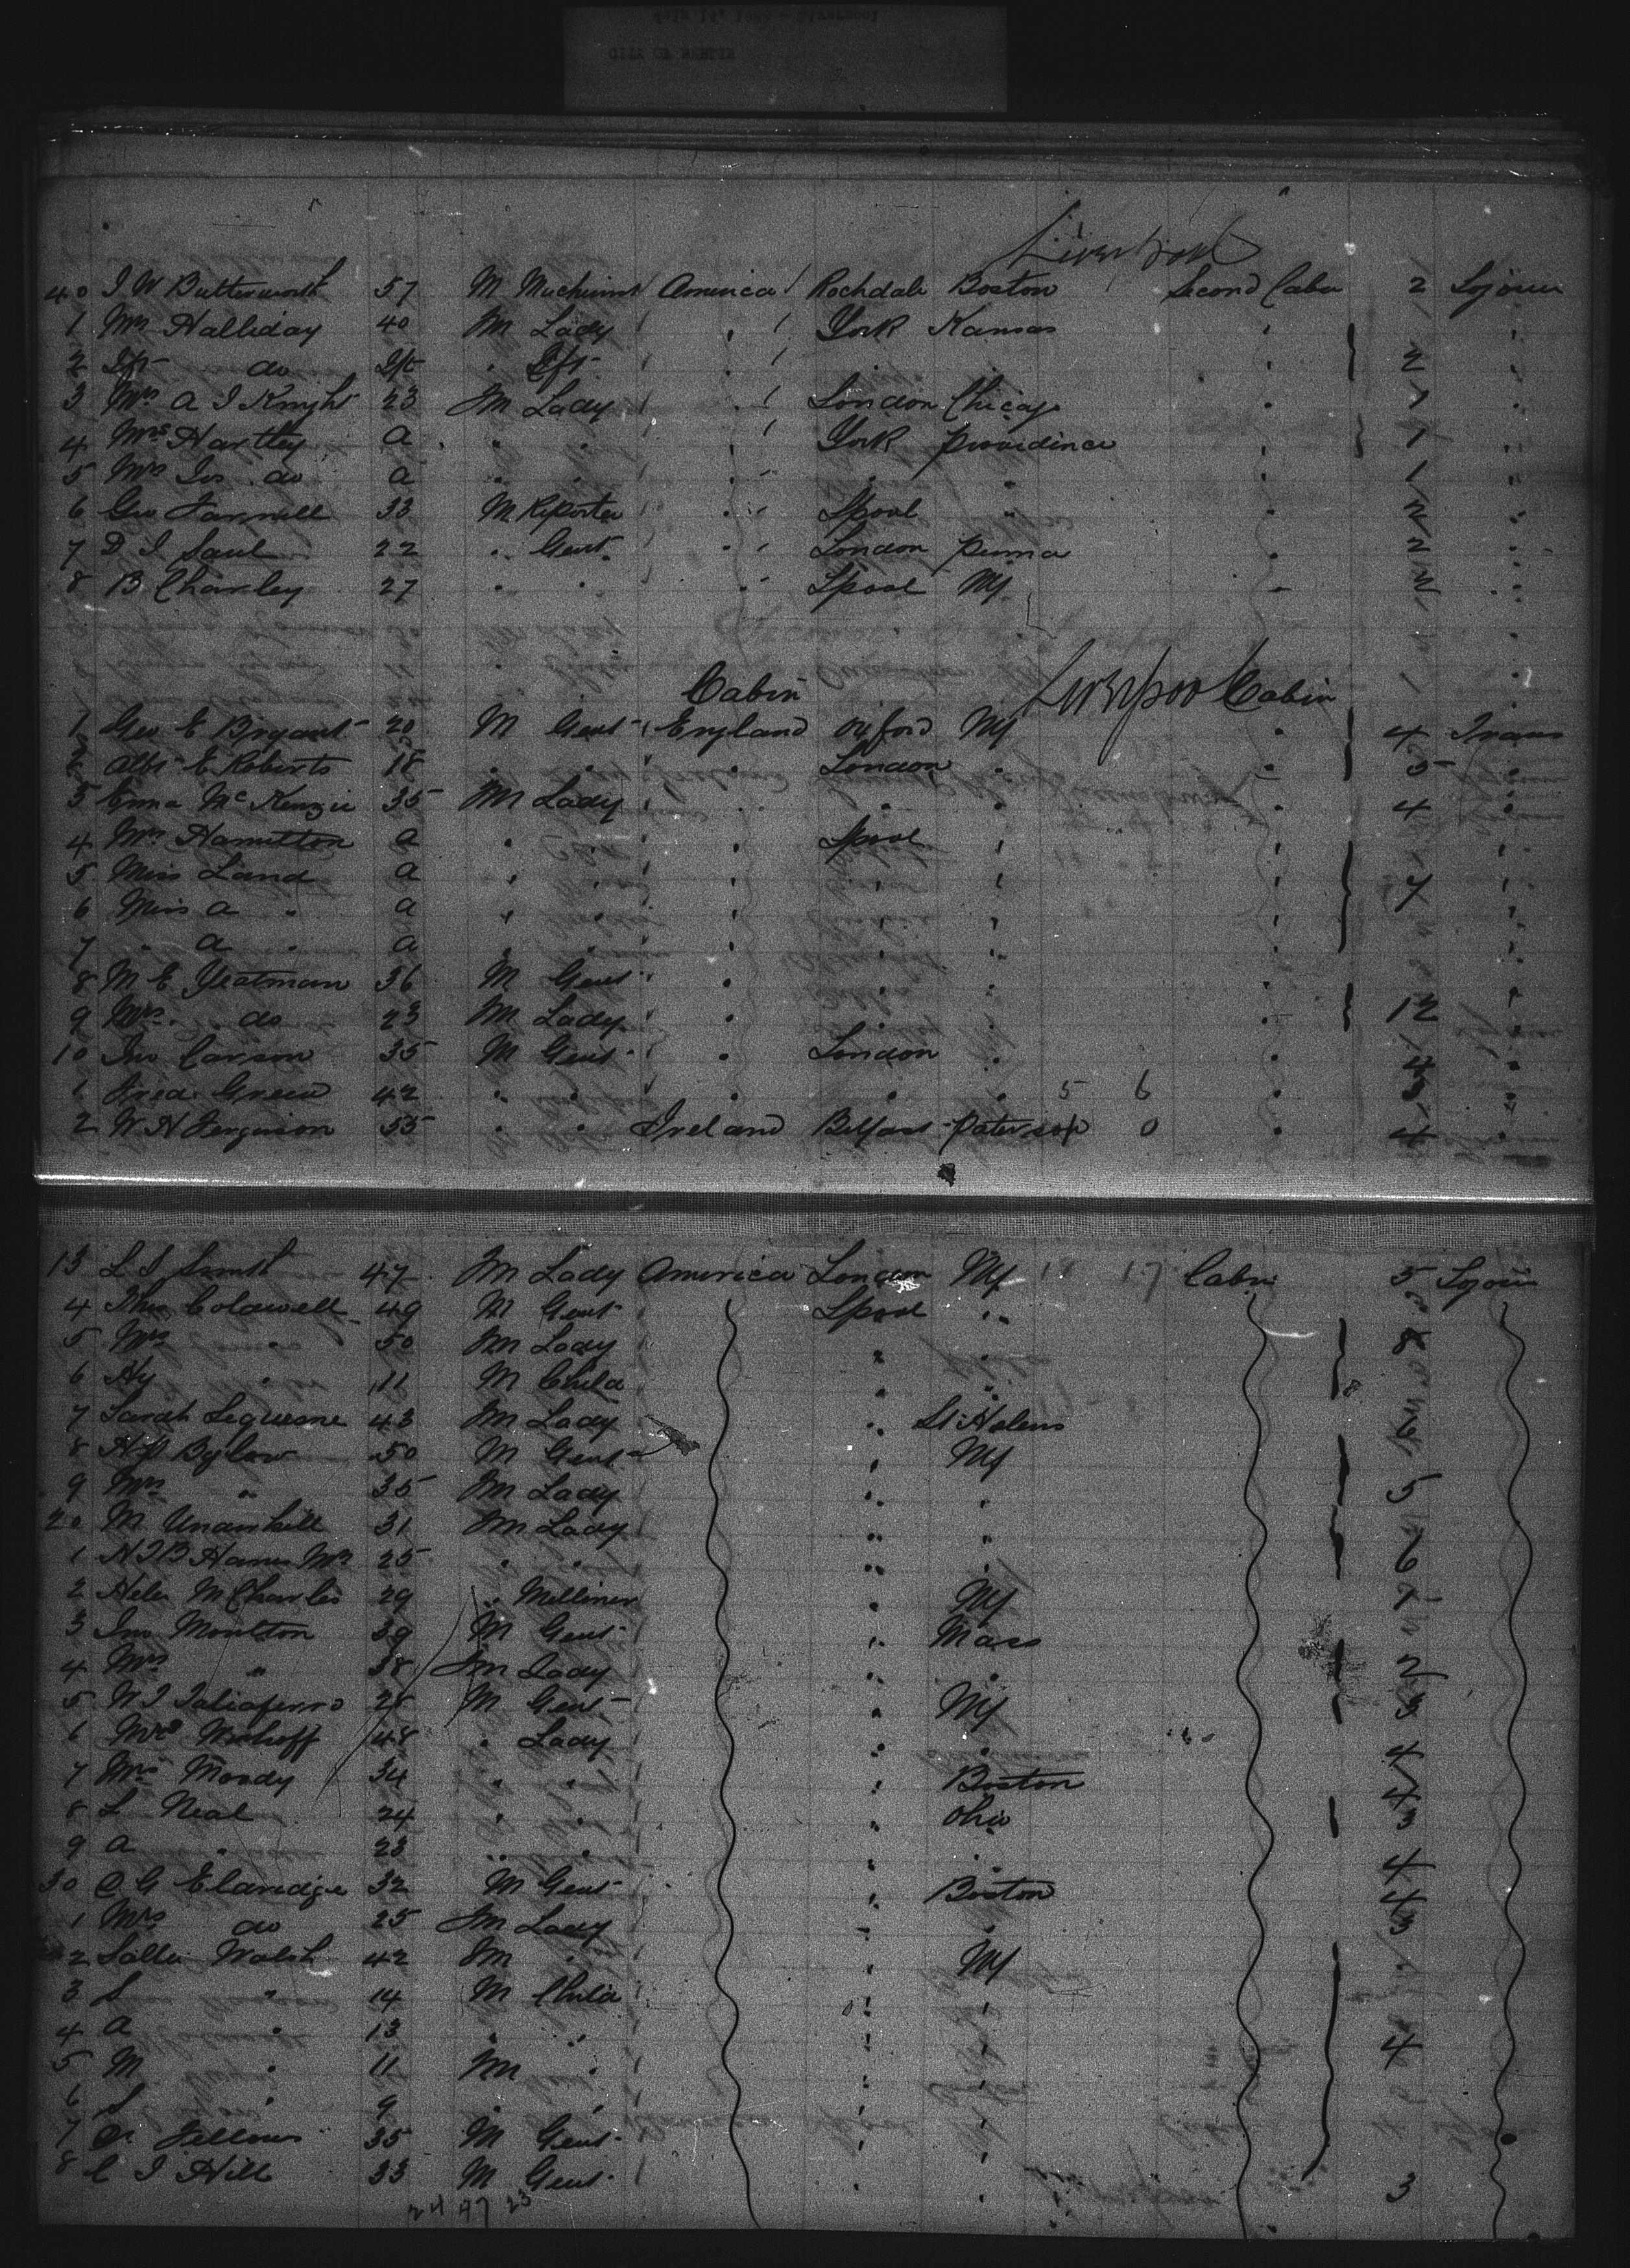 Liverpool
40 J W Butterworth 57 M Machinist America Rochdale Boston Second Cabin 2 Sojour
1 Mrs Halliday 40 Fm Lady " York Kansas "
2 Ift do Ift " Ift " 2 "
3 Mrs A J Knight 23 Fm Lady " London Chicago " 1 "
4 Mrs Hartley a " " " York Providence 1 "
5 Mrs Jos do a " " " " " " 1 "
6 Geo Farnell 33 M Reporter " Lpool " " 2 "
7 D J Saul 22 " Gent " London Penna " 2 "
8 B Charley 27 " " " Lpool NY " 2 "
Cabin Liverpool Cabin
1 Geo E Bryant 20 M Gent England Oxford NY " 4 Trans
2 Albt E Roberts 18 " " " London " " 5 "
3 Emma McKenzie 35 Fm Lady " " " " 4 "
4 Mrs Hamilton a " " " Lpool " " "
5 Miss Land a " " " " " " 7 "
6 Miss A " a " " " " " " "
7 " A " a " " " " " " "
8 M E Yeatman 36 M Gent " " " "
9 Mrs do 23 Fm Lady " " " 12 "
10 Jno Carson 35 M Gent " London " " 4 "
1 Fred Green 42 " " " " " 5 6 " 3 "
2 W H Ferguson 55 " " Ireland Belfast Paterson 0 " 4 "
13 L S Smith 47 Fm Lady America London NY 17 Cabin 5 Sojour
4 Thos Coldwell 49 M Gent Lpool "
5 Mrs " 50 Fm Lady " " 8
6 Hy " 11 M Child " "
7 Sarah Lequesne 43 Fm Lady " St Helens 6
8 H Bylow 50 M Gent " NY
9 Mrs " 35 Fm Lady " " 5
20 M Underhill 31 Fm Lady " "
1 Mrs 25 " " " " 6
2 Helen M Charles 29 " Milliner " NY
3 Jno Moulton 39 M Gent " Mass
4 Mrs " 38 Fm Lady " " 2
5 W J Taliaferro 28 M Gent " NY 3
6 Mrs 48 " Lady " " 4
7 Mrs Moody 34 " " " Boston 4
8 L Neal 24 " " " Ohio 3
9 A " 23 " " " " 4
30 C G Eldridge 32 M Gent " Boston 4
1 Mrs do 25 Fm Lady " " 3
2 Sallie Walsh 42 Fm " " NY
3 S " 14 M Child " "
4 A " 13 " " " " 4
5 M " 11 Fm " " "
6 S " 9 " " " "
7 Fellows 35 M Gent " "
8 C J Hill 33 M Gent " " 3
24 47 23